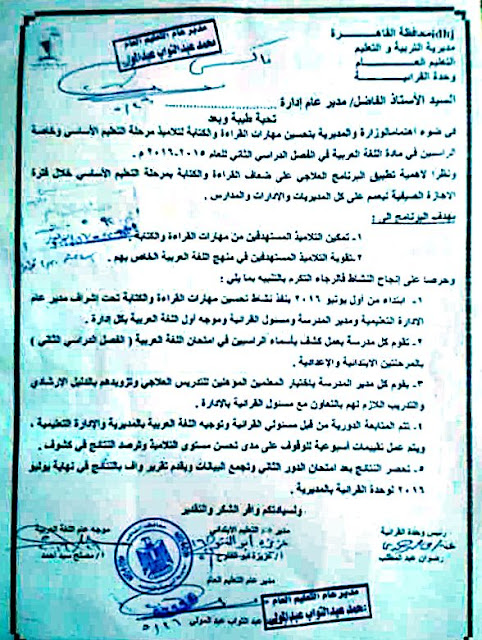 محافظة القاهـــرة
مديرية التربية و التعليم
التعليم العـــام
وحدة القرائيـــة
مدير عام التعليم العام
محمد عبدالتواب عبدالمولى
السيد الأستاذ الفاضل/ مدير عام إدارة ........................
تحية طيبة وبعد
فى ضوء اهتمام الوزارة والمديرية بتحسين مهارات القراءة والكتابة لتلاميذ مرحلة التعليم الأساسى وخاصة
الراسبين في مادة اللغة العربية في الفصل الدراسي الثاني للعام ٢٠١٥-٢٠١٦ م .
ونظرا لاهمية تطبيق البرنامج العلاجي على ضعاف القراءة والكتابة بمرحلة التعليم الأساسي خلال فترة
الاجازة الصيفية ليعمم على كل المديريات والادارات والمدارس .
يهدف البرنامج الى :
١- تمكين التلاميذ المستهدفين من مهارات القراءة والكتابة .
٢- تقوية التلاميذ المستهدفين في منهج اللغة العربية الخاص بهم .
وحرصا على إنجاح النشاط فالرجاء التكرم بالتنبيه بما يلي :
١- ابتداء من أول يونيو ٢٠١٦ ينفذ نشاط تحسين مهارات القراءة والكتابة تحت إشراف مدير عام
الادارة التعليمية ومدير المدرسة ومسئول القرائية وموجه أول اللغة العربية بكل إدارة .
٢- تقوم كل مدرسة بعمل كشف بأسماء الراسبين في امتحان اللغة العربية ( الفصل الدراسي الثاني )
بالمرحلتين الابتدائية والإعدادية .
٣- يقوم كل مدير المدرسة باختيار المعلمين المؤهلين للتدريس العلاجي وتزويدهم بالدليل الإرشادي
والتدريب اللازم لهم بالتعاون مع مسئول القرائية بالإدارة .
٤- تتم المتابعة الدورية من قبل مسئولي القرائية وتوجيه اللغة العربية بالمديرية والإدارة التعليمية ،
ويتم عمل تقييمات أسبوعية للوقوف على مدى تحسن مستوى التلاميذ وترصد النتائج في كشوف .
٥- تحصر النتائج بعد امتحان الدور الثاني وتجمع البيانات ويقدم تقرير واف بالنتائج في نهاية يوليو
٢٠١٦ لوحدة القرائية بالمديرية .
ولسيادتكم وافر الشكر والتقدير
رئيس وحدة القرائية
رضوان عبد المطلب
مدير د/ التعليم الابتدائي
أ/ عزيزة عبد الفتاح
موجه عام اللغة العربية
أ/ مصلح سيد أحمد
مدير عام التعليم العام
محمد عبد التواب عبد المولى
مدير عام التعليم العام
محمد عبد التواب عبدالمولى